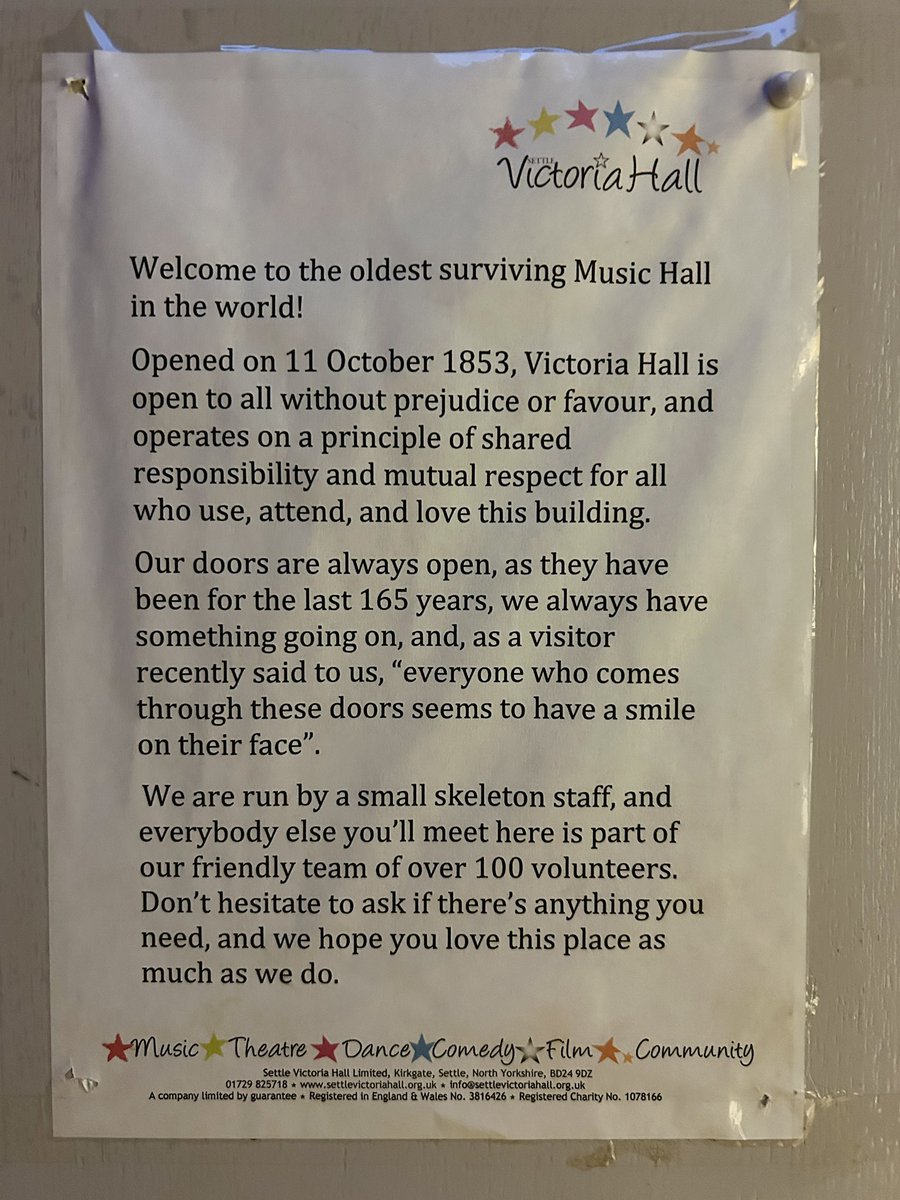 SETTLE
Victoria Hall
Welcome to the oldest surviving Music Hall
in the world!
Opened on 11 October 1853, Victoria Hall is
open to all without prejudice or favour, and
operates on a principle of shared
responsibility and mutual respect for all
who use, attend, and love this building.
Our doors are always open, as they have
been for the last 165 years, we always have
something going on, and, as a visitor
recently said to us, “everyone who comes
through these doors seems to have a smile
on their face”.
We are run by a small skeleton staff, and
everybody else you’ll meet here is part of
our friendly team of over 100 volunteers.
Don’t hesitate to ask if there’s anything you
need, and we hope you love this place as
much as we do.
★Music★Theatre★Dance★Comedy★Film★★Community
Settle Victoria Hall Limited, Kirkgate, Settle, North Yorkshire, BD24 9DZ
01729 825718 ★ www.settlevictoriahall.org.uk ★ info@settlevictoriahall.org.uk
A company limited by guarantee ★ Registered in England & Wales No. 3816426 ★ Registered Charity No. 1078166